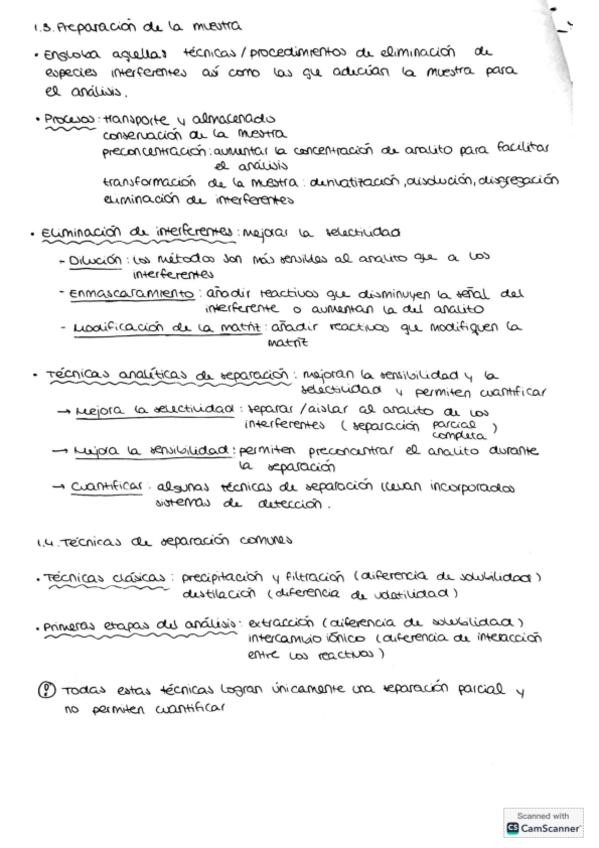 1.3. Preparación de la muestra
• Engloba aquellas técnicas / procedimientos de eliminación de
especies interferentes así como las que adecúan la muestra para
el análisis.
• Procesos: transporte y almacenado
conservación de la muestra
preconcentración: aumentar la concentración de analito para facilitar
el análisis
transformación de la muestra: derivatización, disolución, disgregación
eliminación de interferentes
• Eliminación de interferentes: mejorar la selectividad
- Dilución: los métodos son más sensibles al analito que a los
interferentes
- Enmascaramiento: añadir reactivos que disminuyen la señal del
interferente o aumentan la del analito
- Modificación de la matriz: añadir reactivos que modifiquen la
matriz
• Técnicas analíticas de separación: mejoran la sensibilidad y la
selectividad y permiten cuantificar
→ Mejora la selectividad: separar / aislar al analito de los
interferentes (separación parcial)
completa
→ Mejora la sensibilidad: permiten preconcentrar el analito durante
la separación
→ Cuantificar: algunas técnicas de separación llevan incorporados
sistemas de detección.
1.4. Técnicas de separación comunes
• Técnicas clásicas: precipitación y filtración (diferencia de solubilidad)
destilación (diferencia de volatilidad)
• Primeras etapas del análisis: extracción (diferencia de solubilidad)
intercambio iónico (diferencia de interacción
entre los reactivos)
! Todas estas técnicas logran únicamente una separación parcial y
no permiten cuantificar
Scanned with
CS CamScanner